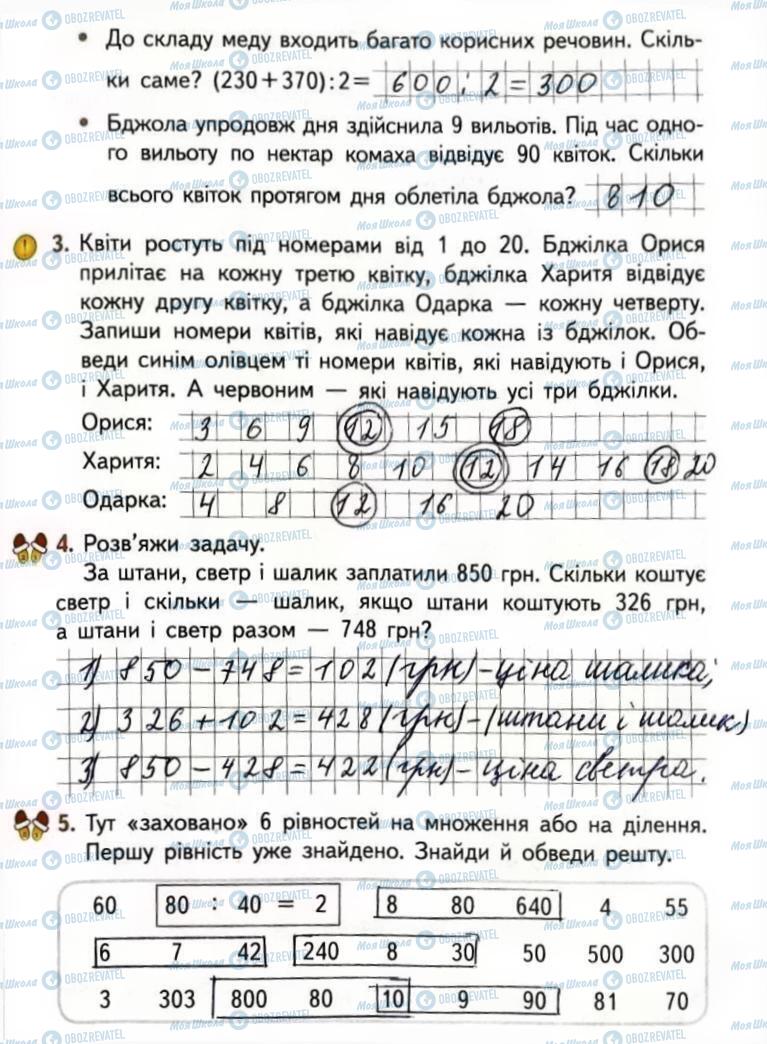 • До складу меду входить багато корисних речовин. Скіль-
ки саме? (230+370):2= 600:2=300
• Бджола упродовж дня здійснила 9 вильотів. Під час одно-
го вильоту по нектар комаха відвідує 90 квіток. Скільки
всього квіток протягом дня облетіла бджола? 810
! 3. Квіти ростуть під номерами від 1 до 20. Бджілка Орися
прилітає на кожну третю квітку, бджілка Харитя відвідує
кожну другу квітку, а бджілка Одарка — кожну четверту.
Запиши номери квітів, які навідує кожна із бджілок. Об-
веди синім олівцем ті номери квітів, які навідують і Орися,
і Харитя. А червоним — які навідують усі три бджілки.
Орися: 3 6 9 12 15 18
Харитя: 2 4 6 8 10 12 14 16 18 20
Одарка: 4 8 12 16 20
4. Розв'яжи задачу.
За штани, светр і шалик заплатили 850 грн. Скільки коштує
светр і скільки — шалик, якщо штани коштують 326 грн,
а штани і светр разом — 748 грн?
1) 850-748=102(грн)-ціна шалика;
2) 326+102=428(грн)-(штани і шалик)
3) 850-428=422(грн)-ціна светра.
5. Тут «заховано» 6 рівностей на множення або на ділення.
Першу рівність уже знайдено. Знайди й обведи решту.
60 80 : 40 = 2 8 80 640 4 55
6 7 42 240 8 30 50 500 300
3 303 800 80 10 9 90 81 70